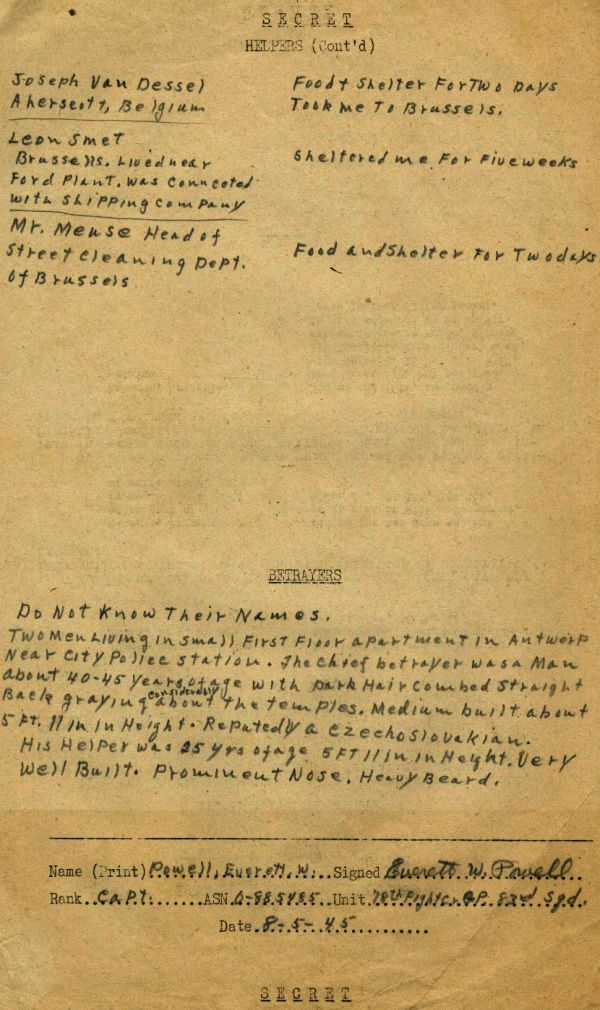 SECRET
HELPERS (Cont'd)
Joseph Van Dessel
Aherscott, Belgium
Food + Shelter For Two Days
Took me To Brussels.
Leon Smet
Brussells. Lived near
Ford Plant. Was Connected
with Shipping Company
Sheltered me For Five weeks
Mr. Mense Head of
Street Cleaning Dept.
Of Brussels
Food and Shelter For Two days
BETRAYERS
Do Not Know Their Names.
Two Men Living in Small First Floor apartment in Antwerp
Near City Police Station. The Chief betrayer was a Man
about 40-45 years of age with Dark Hair Combed Straight
Back graying considerably about the temples. Medium built about
5 Ft. 11 in in Height. Reputedly a Czechoslovakian.
His Helper was 25 yrs of age 5 FT 11 in in Height. Very
Well Built. Prominent Nose. Heavy Beard.
Name (Print) Powell, Everett, W. Signed Everett W. Powell
Rank Capt. ASN 0-885485 Unit 78th Fighter GP. 82nd Sqd.
Date 8-5-45
SECRET